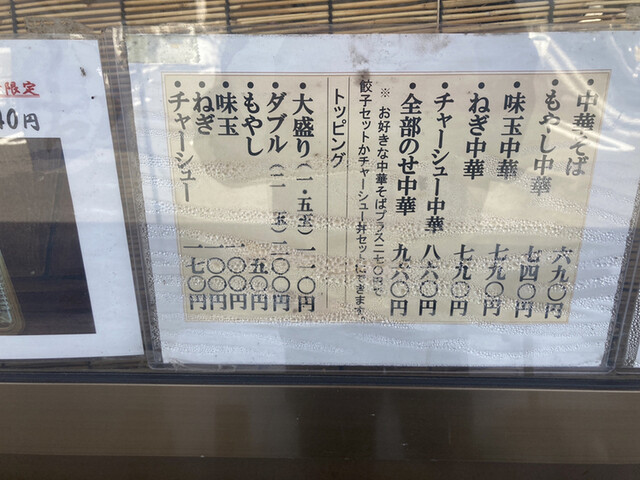 ・中華そば 六九〇円
・もやし中華 七四〇円
・味玉中華 七九〇円
・ねぎ中華 七九〇円
・チャーシュー中華 八六〇円
・全部のせ中華 九六〇円
※ お好きな中華そばプラス二七〇円で
餃子セットかチャーシュー丼セットにできます。
トッピング
・大盛り(一・五玉)一一〇円
・ダブル(二 玉)二〇〇円
・もやし 五〇円
・味玉 一〇〇円
・ねぎ 一〇〇円
・チャーシュー 一七〇円
限定
40円